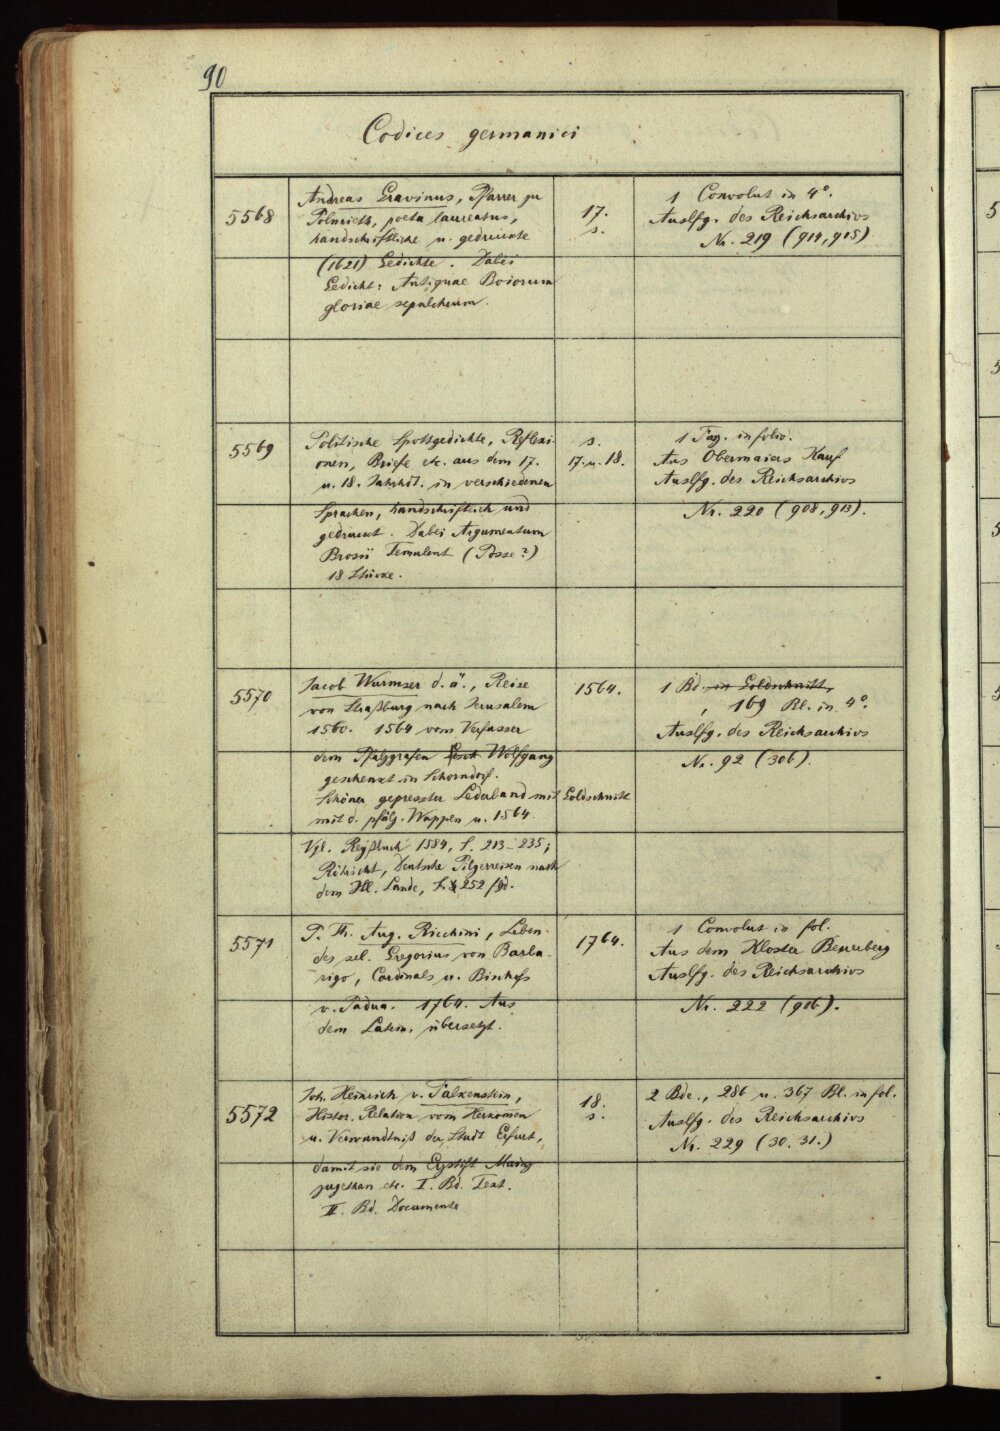 90
Codices germanici
5568
Andreas Gravinus, Pfarrer zu
Polnrieth, poeta laureatus,
handschriftliche u. gedruckte
(1621) Gedichte. Dabei
Gedicht: Antiquae Boiorum
gloriae sepulchrum.
17.
s.
1 Convolut in 4°.
Auslfg. des Reichsarchivs
Nr. 219 (914, 915)
5569
Politische Spottgedichte, Reflexi-
onen, Briefe etc. aus dem 17.
u. 18. Jahrhdt. in verschiedenen
Sprachen, handschriftlich und
gedruckt. Dabei Argumentum
Brosii Temulent (Posse?)
18 Stücke.
s.
17. u. 18.
1 Fasz. in folio.
Aus Obermaiers Kauf
Auslfg. des Reichsarchivs
Nr. 220 (908, 913).
5570
Jacob Wurmser d. ä., Reise
von Straßburg nach Jerusalem
1560. 1564 vom Verfasser
dem Pfalzgrafen Wolfgang
geschenkt in Schorndorf.
Schöner gepresster Lederband mit Goldschnitt
mit d. pfälz. Wappen u. 1564.
Vgl. Reyßbuch 1584, S. 213-235;
Röhricht, Deutsche Pilgerreisen nach
dem Hl. Lande, S. 252 f.
1564.
1 Bd. in Goldschnitt,
, 169 Bl. in 4°.
Auslfg. des Reichsarchivs
Nr. 92 (306).
5571
P. Th. Aug. Ricchini, Leben
des sel. Gregorius von Barba-
rigo, Cardinals u. Bischofs
v. Padua. 1764. Aus
dem Latein. übersetzt.
1764.
1 Convolut in fol.
Aus dem Kloster Beuerberg
Auslfg. des Reichsarchivs
Nr. 222 (906).
5572
Joh. Heinrich v. Falkenstein,
Histor. Relation vom Herkomen
u. Verwandtniß der Stadt Erfurt,
damit sie dem Erzstift Mainz
zugethan etc. I. Bd. Text.
II. Bd. Documente
18.
s.
2 Bde., 286 u. 367 Bl. in fol.
Auslfg. des Reichsarchivs
Nr. 229 (30. 31.)